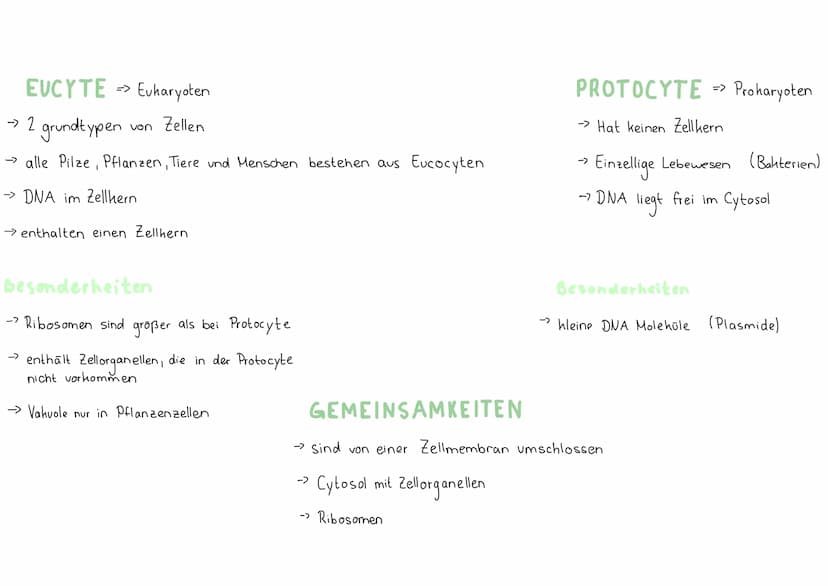 EUCYTE => Eukaryoten
→ 2 grundtypen von Zellen
→ alle Pilze, Pflanzen, Tiere und Menschen bestehen aus Eucocyten
→ DNA im Zellkern
→ enthalten einen Zellkern
besonderheiten
→ Ribosomen sind größer als bei Protocyte
→ enthält Zellorganellen, die in der Protocyte
nicht vorkommen
→ Vakuole nur in Pflanzenzellen
PROTOCYTE => Prokaryoten
→ Hat keinen Zellkern
→ Einzellige Lebewesen (Bakterien)
→ DNA liegt frei im Cytosol
Besonderheiten
→ kleine DNA Moleküle (Plasmide)
GEMEINSAMKEITEN
→ sind von einer Zellmembran umschlossen
→ Cytosol mit Zellorganellen
→ Ribosomen